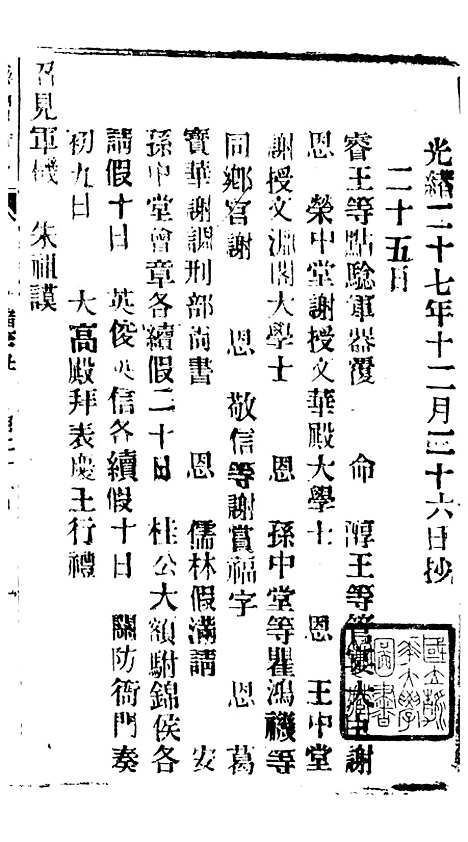 光緒二十七年十二月二十六日抄
二十五日
睿王等點驗軍器覆　命　醇王等管宴大臣謝
恩　榮中堂謝授文華殿大學士　恩　王中堂
謝授文淵閣大學士　恩　孫中堂等瞿鴻禨等
同鄉官謝　恩　敬信等謝賞福字　恩　葛
寶華謝調刑部尚書　恩　儒林假滿請　安
孫中堂曾章各續假二十日　桂公大額駙錦侯各
請假十日　英俊英信各續假十日　關防衙門奏
初九日　大高殿拜表慶王行禮
召見軍機　朱祖謨
國立
大學
圖書